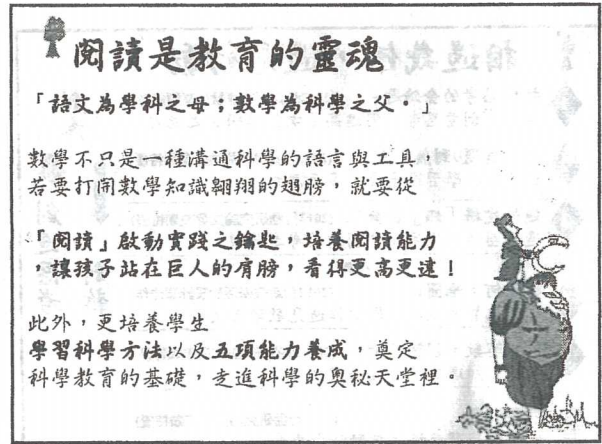 閱讀是教育的靈魂
「語文為學科之母；數學為科學之父。」
數學不只是一種溝通科學的語言與工具，
若要打開數學知識翱翔的翅膀，就要從
「閱讀」啟動實踐之鑰匙，培養閱讀能力
，讓孩子站在巨人的肩膀，看得更高更遠！
此外，更培養學生
學習科學方法以及五項能力養成，奠定
科學教育的基礎，走進科學的奧秘天堂裡。